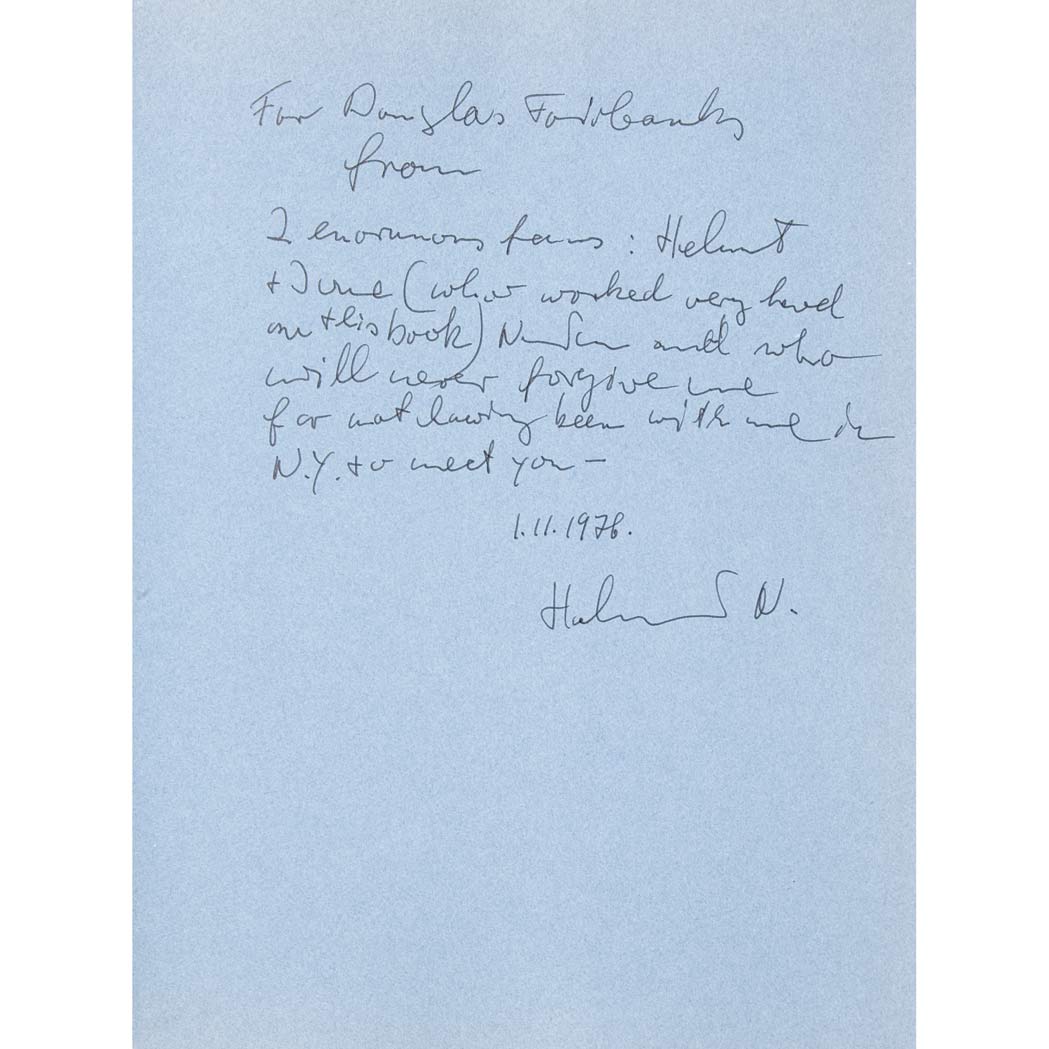 For Douglas Fairbanks
from
2 enormous fans : Helmut
+ June (who worked very hard
on this book) Newton and who
will never forgive me
for not having been with me in
N.Y. to meet you –
1.11.1978.
Helmut N.